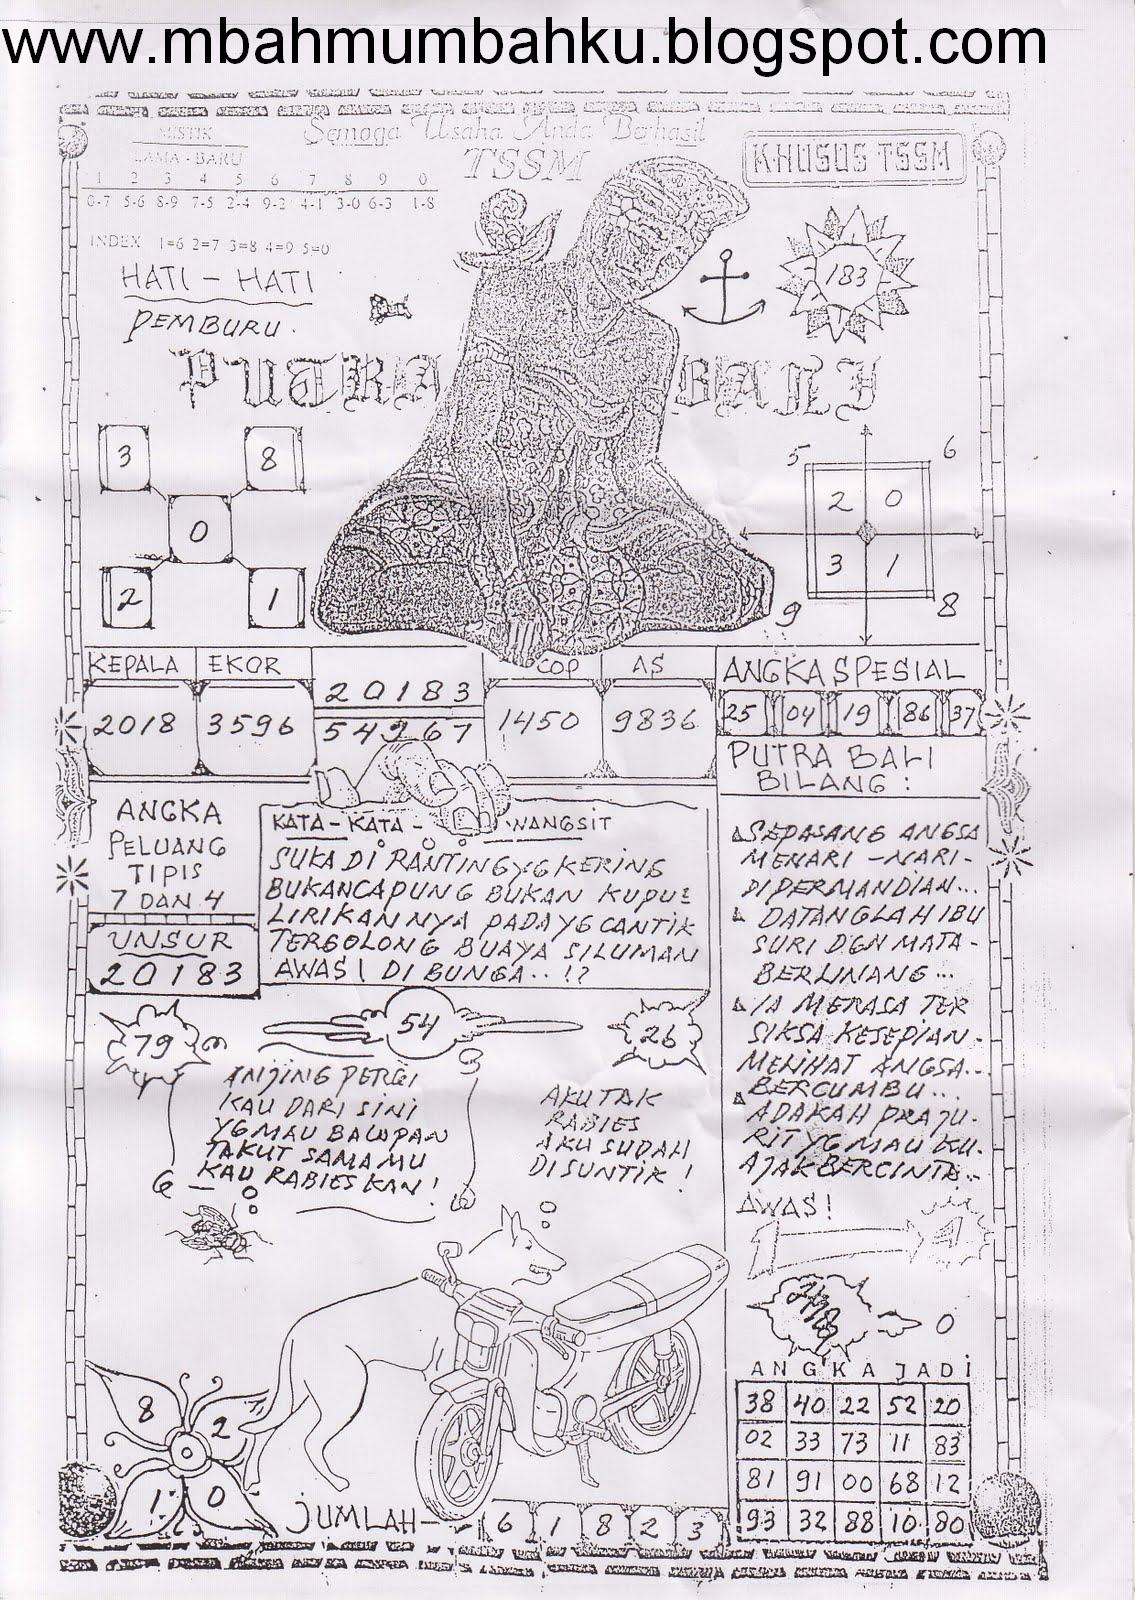 www.mbahmumbahku.blogspot.com
MISTIK
LAMA - BARU
1 2 3 4 5 6 7 8 9 0
0-7 5-6 8-9 7-5 2-4 9-2 4-1 3-0 6-3 1-8
INDEX 1=6 2=7 3=8 4=9 5=0
Semoga Usaha Anda Berhasil
TSSM
KHUSUS TSSM
183
HATI - HATI
PEMBURU.
PUTRA BALI
3 8
0
2 1
5 6
2 0
3 1
9 8
KEPALA EKOR
2018 3596
20183
54967
COP AS
1450 9836
ANGKA SPESIAL
25 04 19 86 37
ANGKA
PELUANG
TIPIS
7 DAN 4
UNSUR
20183
KATA - KATA - WANGSIT
SUKA DI RANTING YG KERING
BUKAN CAPUNG BUKAN KUPU2
LIRIKANNYA PADA YG CANTIK
TERGOLONG BUAYA SILUMAN
AWAS! DI BUNGA..!?
PUTRA BALI
BILANG :
SEPASANG ANGSA
MENARI - NARI -
DIPERMANDIAN...
DATANGLAH IBU
SURI DGN MATA -
BERLINANG...
IA MERASA TER
SIKSA KESEPIAN -
MELIHAT ANGSA...
BERCUMBU...
ADAKAH PRAJU-
RIT YG MAU KU-
AJAK BERCINTA...
AWAS!
1 4
0
79 54 26
3
ANJING PERGI
KAU DARI SINI
YG MAU BALAPAN
TAKUT SAMA MU
KAU RABIES KAN!
6
AKU TAK
RABIES
AKU SUDAH
DISUNTIK!
8 2
1 0
JUMLAH - 6 1 8 2 3
ANGKA JADI
38 40 22 52 20
02 33 73 11 83
81 91 00 68 12
93 32 88 10 80